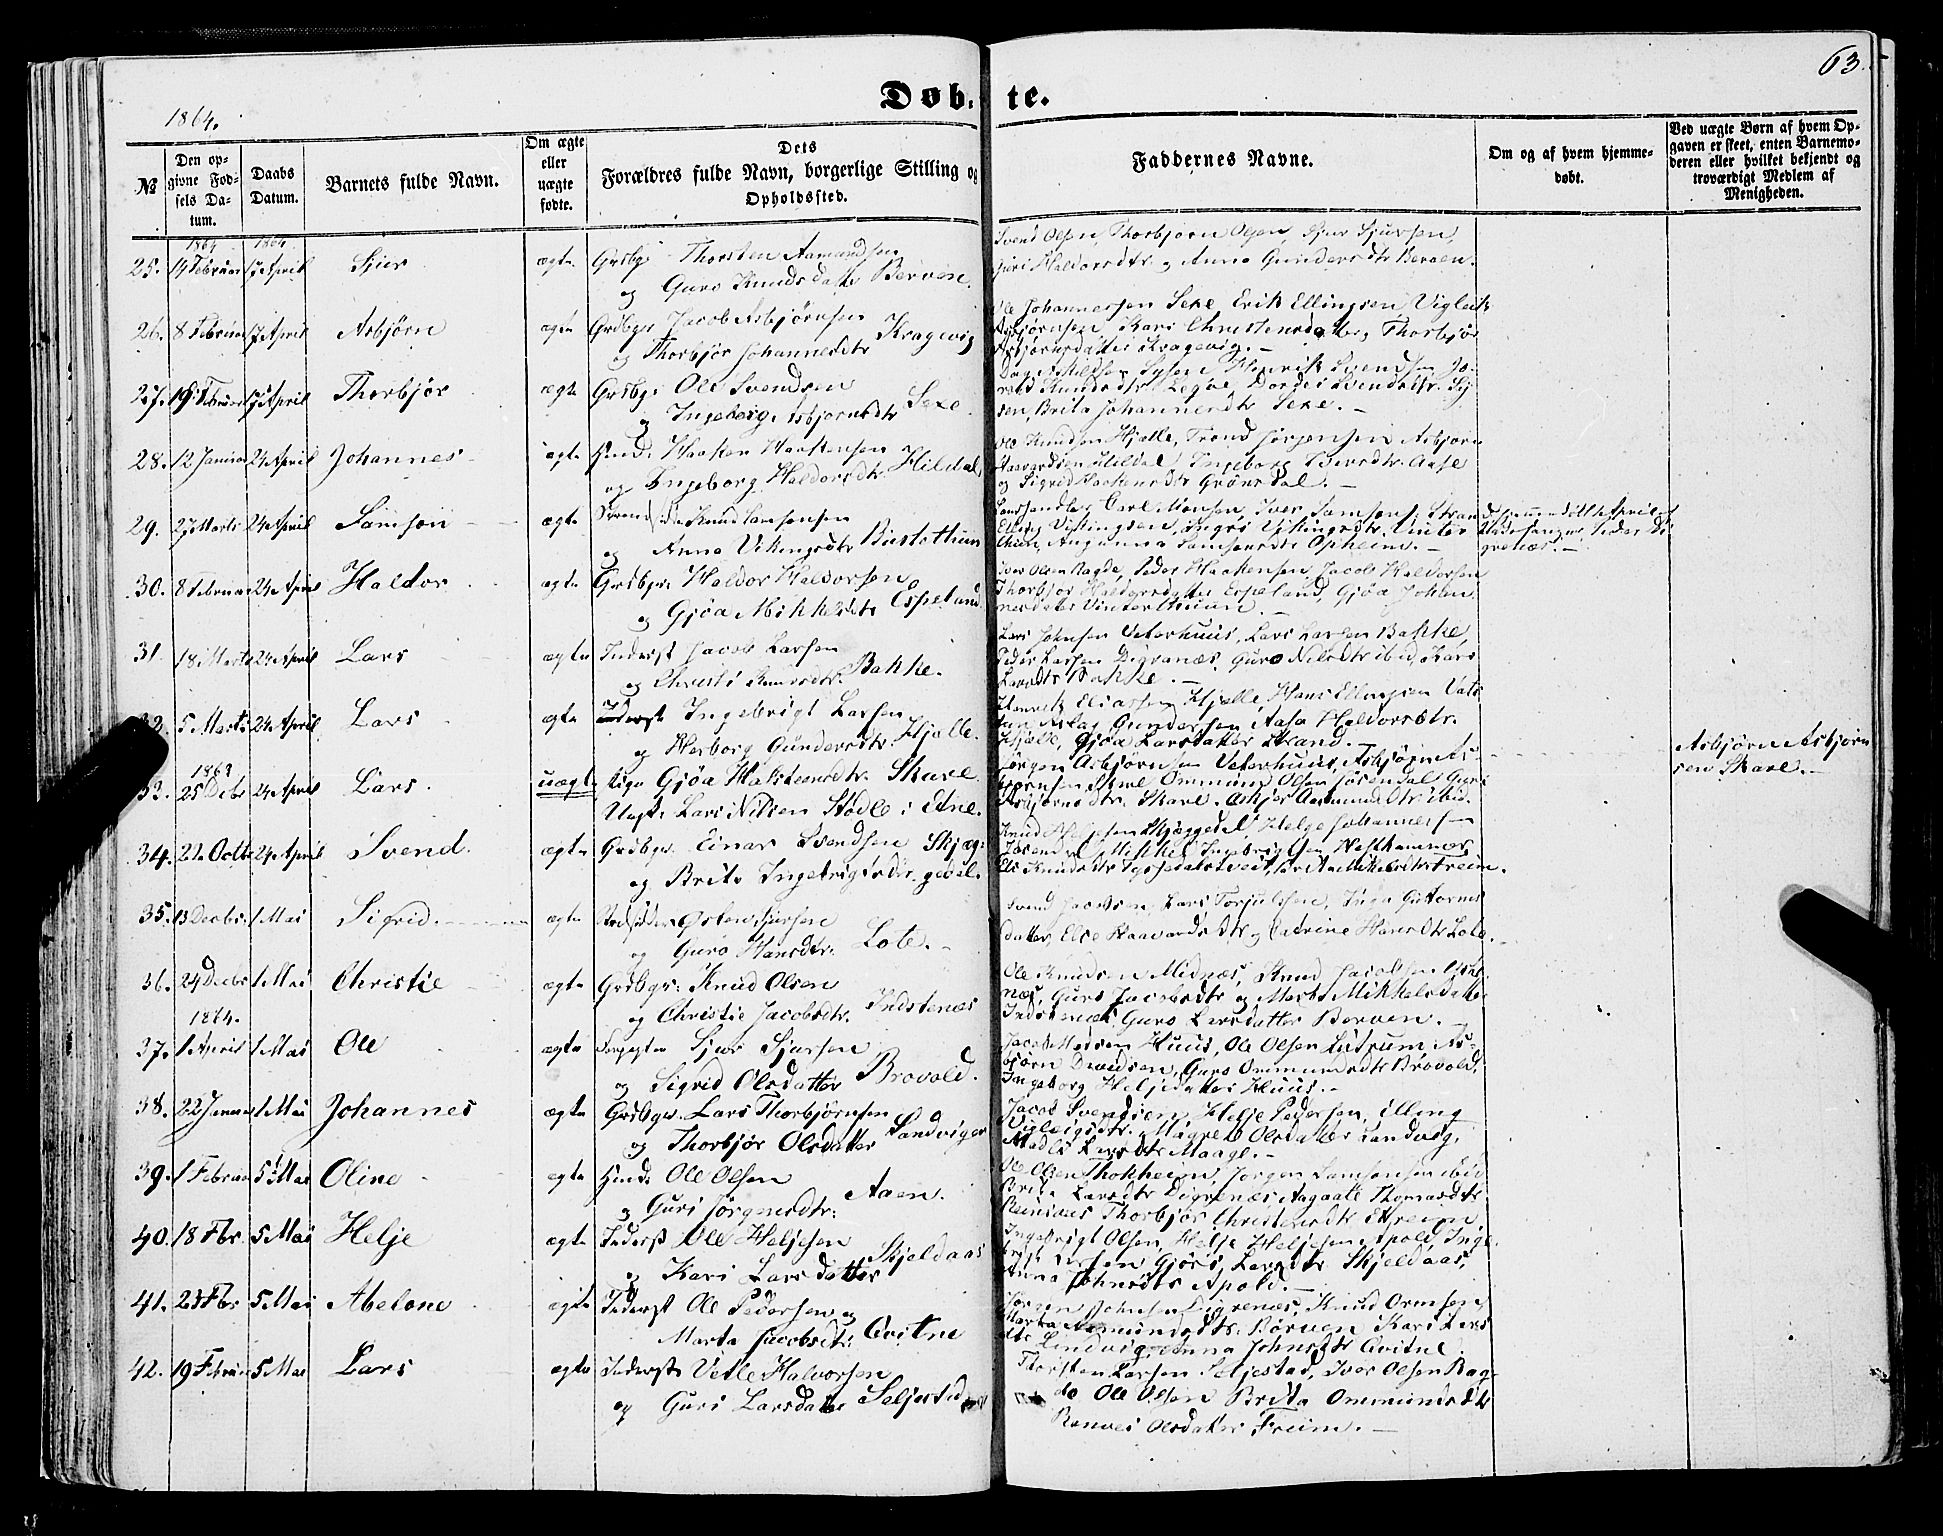 63.
Døbte.
1864.
№
Den opgivne Fødsels Datum.
Daabs Datum.
Barnets fulde Navn.
Om ægte eller uægte fødte.
Dets Forældres fulde Navn, borgerlige Stilling og Opholdssted.
Faddernes Navne.
Om og af hvem hjemmedøbt.
Ved uægte Børn af hvem Opgaven er skeet, enten Barnemoderen eller hvilket bekjendt og troværdigt Medlem af Menigheden.
1864 1864
25. 14 Februar 17 April Sjur ægte Grdbgr Thorsten Aamundsen
og Guro Knudsdatter Berven.
Svend Olsen, Thorbjørn Olsen, Sjur Sjursen,
Guri Haldorsdtr og Anna Gundersdtr Berven.
26. 8 Februar 17 April Asbjørn ægte Grdbgr Jacob Asbjørnsen
og Thorbjør Johannesdtr Kragevig
Ole Johannessen Sexe, Erik Ellingsen Vigleik
Asbjørnsen Kari Christensdatter, Thorbjør
Asbjørnsdatter Kragevig. —
27. 19 Februar 17 April Thorbjør ægte Grdbgr Ole Svendsen
og Ingeborg Asbjørnsdtr Sexe.
Henrik Svendsen
sen, Brita Johannesdtr Sexe. —
28. 12 Januar 24 April Johannes ægte Hmd: Haaken Haakensen
og Ingeborg Haldorsdtr Hildal,
Ole Knudsen Hjelle, Trond Jørgensen Asbjørn
Haavardsen Hildal, Ingeborg Aase
og Sigrid Haakensdtr Grønsdal. —
29. 27 Marts 24 April Samson ægte Knud Samsonsen
og Anna Vikingsdtr Bustethun
Carl Monsen, Iver Samsons: Stran
Elling Vikingsen, Ingri Vikingsdtr. Vinter
thun, Samsonsdtr Opheim. —
30. 8 Februar 24 April Haldor ægte Grdbgr: Haldor Haldorsen
og Gjøa Mikkelsdtr Espeland.
Iver Olsen Ragde, Peder Haakensen, Jacob Haldorsen
Thorbjør Haldorsdatter Espeland, Gjøa Johan
nesdatter Vinterthuun. —
31. 18 Marts 24 April Lars ægte Inderst Jacob Larsen
og Christi Bakke.
Lars Johnsen Veterhuus, Lars Larsen Bakke,
Peder Larsen Digranæs, Guro Nilsdtr ibid, Kari
Larsdtr Bakke. —
32. 5 Marts 24 April Lars ægte Inderst Ingebrigt Larsen
og Herborg Gundersdtr. Hjelle.
Henrik Eliassen Hjelle, Hans Ellingsen
Aslag Gundersen Aasa Haldorsdtr.
Hjelle, Gjøa Larsdatter Strand. —
1863
33. 25 Decbr 24 April Lars. uægte Pige Gjøa Halstensdtr. Skare
Ungk. Lars Nilsen Stødle i Etne.
Jørgen Asbjørnsen Veterhuus, Asbjørn As-
bjørnsen Skare Ommund Olsen Jøsendal Guri
Asbjørnsdtr. Skare. Aamundsdtr. ibid.
Asbjørn Asbjørn
sen Skare. —
34. 22 Octbr 24 April Svend. ægte Grdbgr. Einar Svendsen Skjæg-
og Brita Ingebrigtsdtr. gedal.
Knud Skjæggedal, Helge Johannessen
Jøsendal, Mikkel Ingebrigtsen
Knudsdtr Tyssedalstveit, Mikkelsdtr Freim.
35. 13 Decbr. 1 Mai Sigrid. ægte Østen Sjursen
og Guro Hansdtr. Lote. —
Svend Jacobsen, Lars Torjulsen, Inga Guttorms
datter, Else Haavardsdtr og Catrine Hansdtr Lote.
36. 24 Decbr 1 Mai Christie ægte Grdbgr: Knud Olsen
og Christie Jacobsdtr. Indstenæs
Ole Knudsen Midnæs, Knud Jacobsen
næs, Guro Jacobsdtr og Marta Mikkelsdatter
Indstenæs, Guro Larsdatter Berven. —
1864.
37. 1 April 1 Mai Ole ægte Sjur Sjursen
og Sigrid Olsdatter Brovold.
Jacob Madsen Huus, Ole Olsen Lutrum As-
bjørn Davidsen, Guro Ommundsdtr Brovold,
Ingeborg Heljesdatter Huus. —
38. 22 Januar 1 Mai Johannes ægte Grdbgr. Lars Thorbjørnsen
og Thorbjør Olsdatter Sandvigen
Jacob Svendsen, Helje Pedersen, Elling
Vigleigsdtr. Magrete Olsdatter Sandvig,
Larsdtr Maage. —
39. 1 Februar 5 Mai Oline ægte Hmd: Ole Olsen
og Guri Jørgensdtr. Aaen.
Ole Olsen Thokheim, Jørgen Samsonsen ibid
Brita Larsdtr Digrenæs Aagaate Thomasdtr
Reinæs Thorbjør Christensdtr Eitreim
40. 18 Fbr. 5 Mai Helje ægte Inderst Ole Heljesen
og Kari Larsdatter Skjeldaas
Ingebrigt Olsen, Helje Heljesen Apold, Inge
brigt Larsen Gjøri Larsdtr Skjeldaas,
Anna Johnsdtr Apold. —
41. 23 Fbr 5 Mai Abelone ægte Inderst Ole Pedersen
og Marta Jacobsdtr. Qvitne
Jørgen Johnsen Digrenæs, Knud Ormsen,
Marta Aamundsdtr. Børven Kari Lars
dtr Sandvig, Anna Johnsdtr Qvitne.
42. 19 Februar 5 Mai Lars ægte Inderst Vetle Halvorsen
og Guri Larsdatter Seljestad
Thorsten Larsen Seljestad, Iver Olsen Rag-
de Ole Olsen Brita Ommundsdtr
Rannei Olsdatter Freim. —